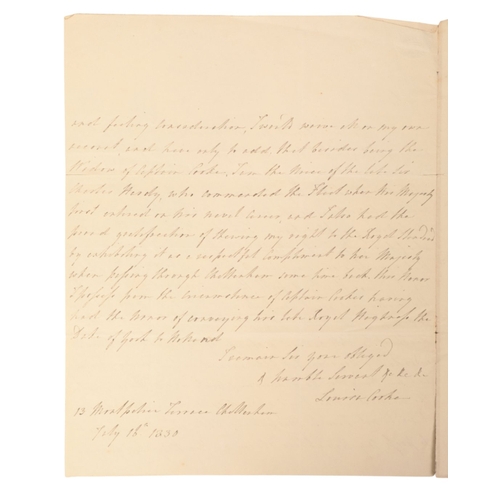 and feeling consideration, I write more on my own
account, and have only to add that besides being the
Widow of Captain Cooke, I am the Niece of the late Sir
Charles Hardy, who commanded the Fleet when His Majesty
first entered on his naval career, and I also had the
proud gratification of shewing my right to the Royal
by exhibiting it as a respectful compliment to her Majesty
when passing through Cheltenham some time back this Honor
I possess from the circumstance of Captain Cooke having
had the Honor of conveying his late Royal Highness the
Duke of York to Holland
I remain Sir your obliged
& humble Servant &c &c &c
Louisa Cooke
13 Montpelier Terrace Cheltenham
Feby 1830